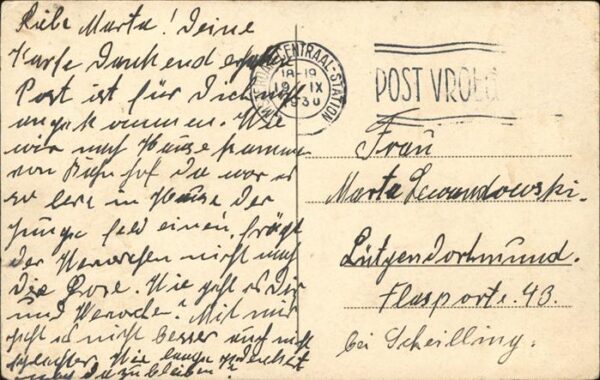 Liebe Marta! Deine
Karte Dankend erhalten
Post ist für Dich nicht
angekommen. Wie
wir nach Hause kamen
von Bahnhof Da war es
so leer in Hause Der
Junge
einen, frägt
Der nicht nach
Die Wie geht es Dir
und Mit mir
geht es nicht besser auch nicht
schlechter, Wie lange
noch da zu bleiben?
CENTRAAL-STATION
18-19
19 IX
1930
POST VROEG
Frau
Marta Lewandowski.
Lütgendortmund.
Flasporte. 43.
bei Scheilling.